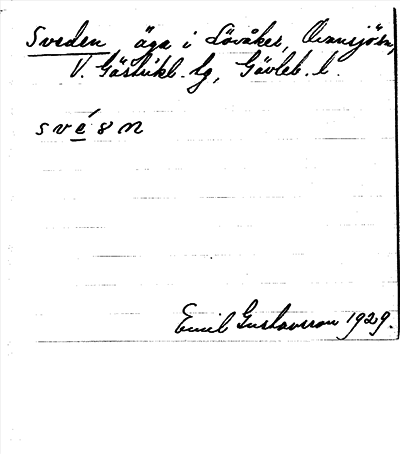 Sveden äga i Lövåker, Ovansjösn,
V. Gästrikl. tg, Gävleb. l.
své8n
Emil Gustavsson 1929.